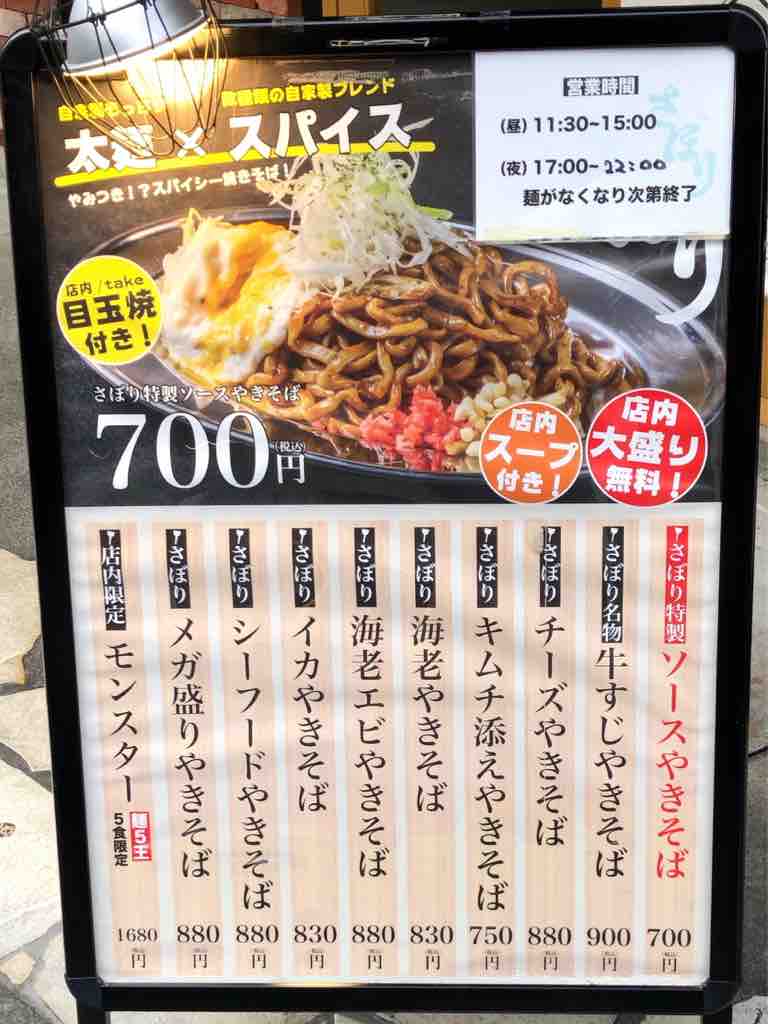 の自家製ブレンド
太麺×スパイス
やみつき！？スパイシー焼きそば！
営業時間
(昼) 11:30~15:00
(夜) 17:00~22:00
麺がなくなり次第終了
さぼり
り
店内/take
目玉焼
付き！
さぼり特製ソースやきそば
700円(税込)
店内
スープ
付き！
店内
大盛り
無料！
さぼり特製 ソースやきそば 700円(税込)
さぼり名物 牛すじやきそば 900円(税込)
さぼり チーズやきそば 880円(税込)
さぼり キムチ添えやきそば 750円(税込)
さぼり 海老やきそば 830円(税込)
さぼり 海老エビやきそば 880円(税込)
さぼり イカやきそば 830円(税込)
さぼり シーフードやきそば 880円(税込)
さぼり メガ盛りやきそば 880円(税込)
店内限定 モンスター 麺5玉 5食限定 1680円(税込)